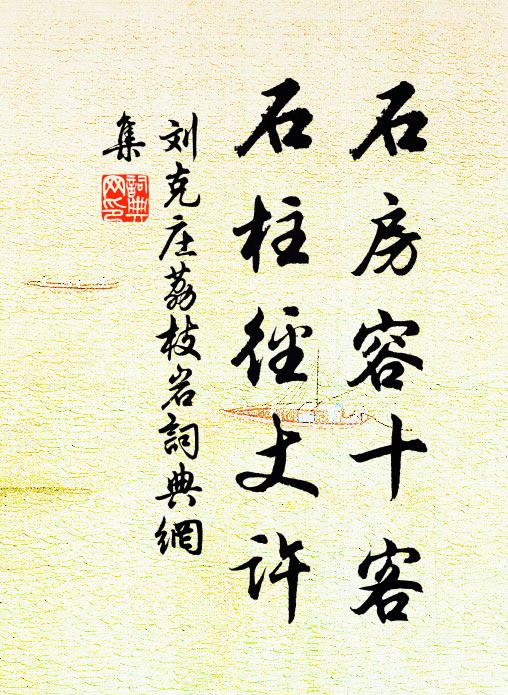 石房容十客
石柱径丈许
刘克庄荔枝岩詞典網
集
詞典
网印